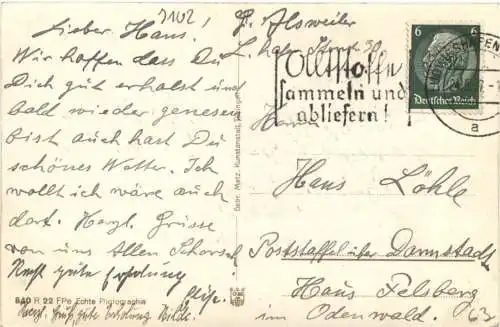 3102
Lieber Hans!
Wir hoffen dass Du
Dich gut erholst und
bald wieder genesen
bist auch hast Du
schönes Wetter. Ich
wollt ich wäre auch
dort. Herzl. Grüsse
von uns Allen Schorsch
Recht gute Erholung
Herzl. Grüße, gute Erholung
Gebr. Metz, Kunstanstalt, Tübingen
840 R 22 FPe Echte Photographie
Alsweiler
L.hafen
30
Altstoffe
sammeln und
abliefern!
6 6
Deutsches Reich
LUDWIGSHAFEN
a
Herrn
Hans Löhle
Poststaffel über Darmstadt
Haus Felsberg
im Odenwald.
63